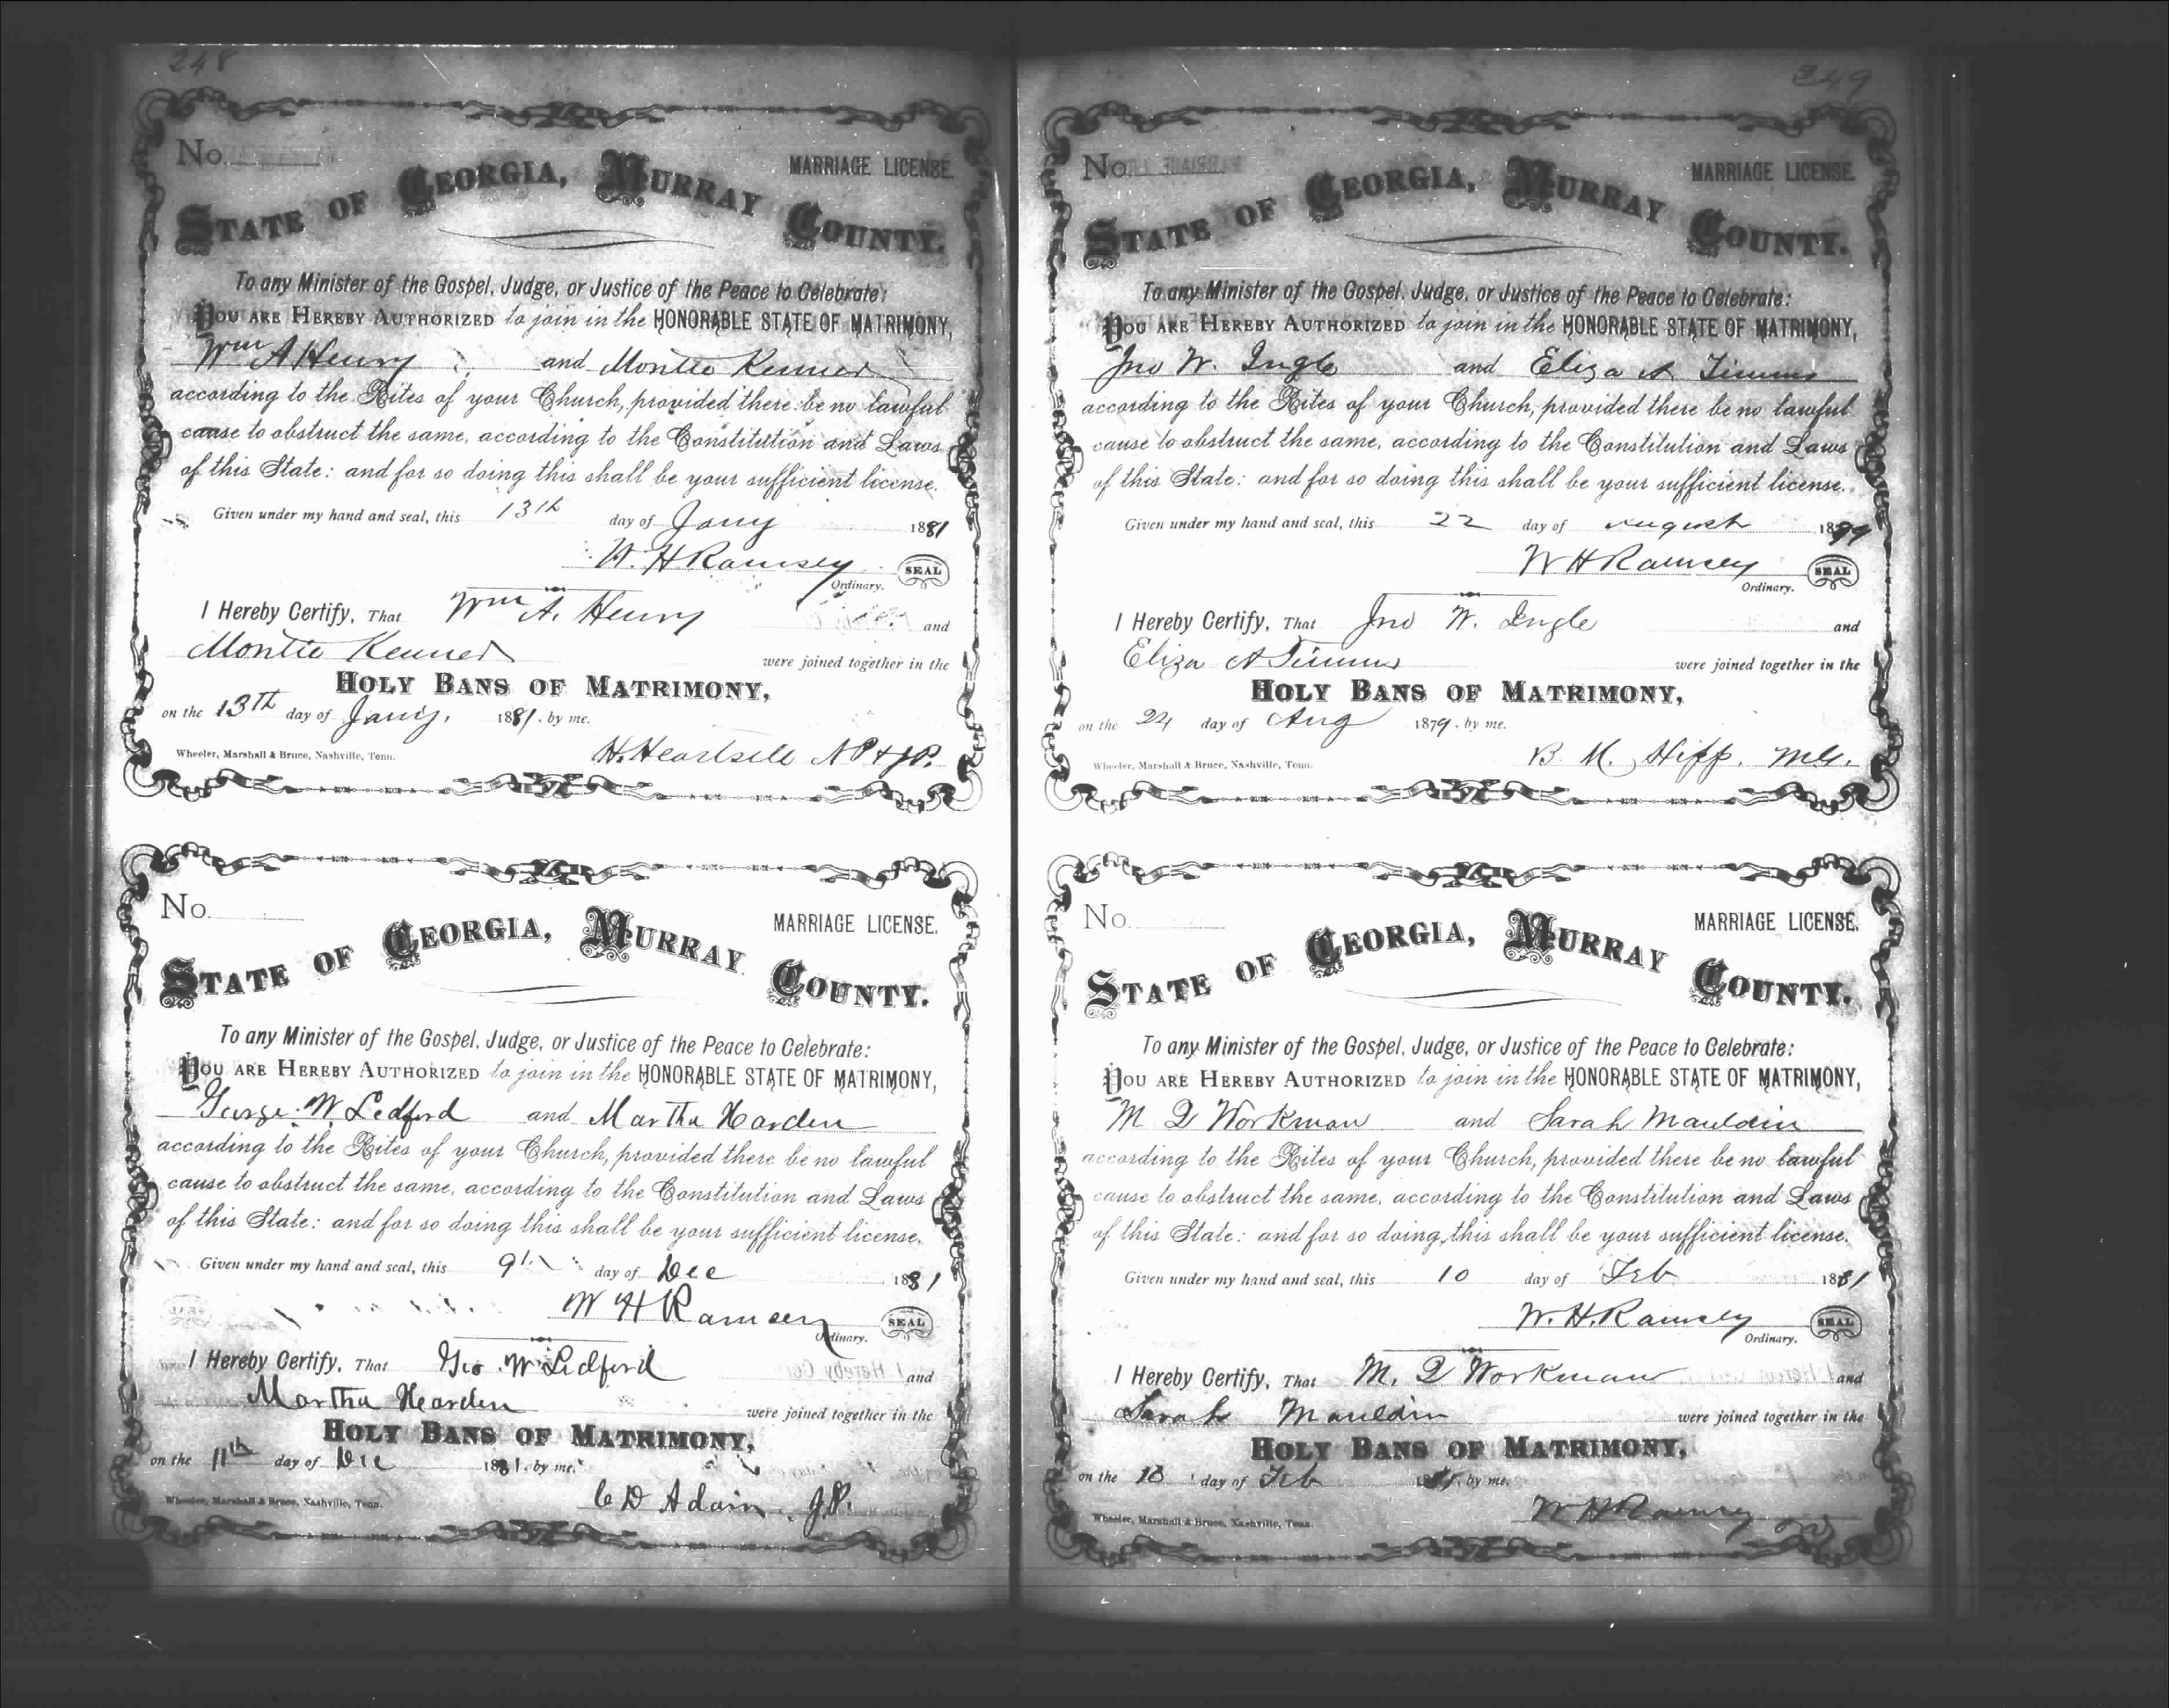 248
No.
MARRIAGE LICENSE.
STATE OF GEORGIA, MURRAY COUNTY.
To any Minister of the Gospel, Judge, or Justice of the Peace to Celebrate:
YOU ARE HEREBY AUTHORIZED to join in the HONORABLE STATE OF MATRIMONY,
Wm A Henry and Montie Kenner
according to the Rites of your Church, provided there be no lawful
cause to obstruct the same, according to the Constitution and Laws
of this State: and for so doing this shall be your sufficient license.
Given under my hand and seal, this 13th day of Jany 1881
W. H Ramsey SEAL
Ordinary.
I Hereby Certify, That Wm A. Henry and
Montie Kenner were joined together in the
HOLY BANS OF MATRIMONY,
on the 13th day of Jany. 1881. by me.
Wheeler, Marshall & Bruce, Nashville, Tenn. H. Heartsell NP & JP.
No.
MARRIAGE LICENSE.
STATE OF GEORGIA, MURRAY COUNTY.
To any Minister of the Gospel, Judge, or Justice of the Peace to Celebrate:
YOU ARE HEREBY AUTHORIZED to join in the HONORABLE STATE OF MATRIMONY,
George W. Ledford and Martha Harden
according to the Rites of your Church, provided there be no lawful
cause to obstruct the same, according to the Constitution and Laws
of this State: and for so doing this shall be your sufficient license.
Given under my hand and seal, this 9th day of Dec 1881
W H Ramsey SEAL
Ordinary.
I Hereby Certify, That Geo. W Ledford and
Martha Harden were joined together in the
HOLY BANS OF MATRIMONY,
on the 11th day of Dec 1881. by me.
Wheeler, Marshall & Bruce, Nashville, Tenn. C D Adair. J.P.
249
No.
MARRIAGE LICENSE.
STATE OF GEORGIA, MURRAY COUNTY.
To any Minister of the Gospel, Judge, or Justice of the Peace to Celebrate:
YOU ARE HEREBY AUTHORIZED to join in the HONORABLE STATE OF MATRIMONY,
Jno W. Ingle and Eliza A Timms
according to the Rites of your Church, provided there be no lawful
cause to obstruct the same, according to the Constitution and Laws
of this State: and for so doing this shall be your sufficient license.
Given under my hand and seal, this 22 day of August 1879
W H Ramsey SEAL
Ordinary.
I Hereby Certify, That Jno W. Ingle and
Eliza A Timms were joined together in the
HOLY BANS OF MATRIMONY,
on the 24 day of Aug 1879. by me.
Wheeler, Marshall & Bruce, Nashville, Tenn. B. M. Hipp. MG.
No.
MARRIAGE LICENSE.
STATE OF GEORGIA, MURRAY COUNTY.
To any Minister of the Gospel, Judge, or Justice of the Peace to Celebrate:
YOU ARE HEREBY AUTHORIZED to join in the HONORABLE STATE OF MATRIMONY,
M Q Workman and Sarah Mauldin
according to the Rites of your Church, provided there be no lawful
cause to obstruct the same, according to the Constitution and Laws
of this State: and for so doing this shall be your sufficient license.
Given under my hand and seal, this 10 day of Feb 1881
W. H. Ramsey SEAL
Ordinary.
I Hereby Certify, That M. Q Workman and
Sarah Mauldin were joined together in the
HOLY BANS OF MATRIMONY,
on the 10 day of Feb 1881. by me.
Wheeler, Marshall & Bruce, Nashville, Tenn. W H Ramsey Ord